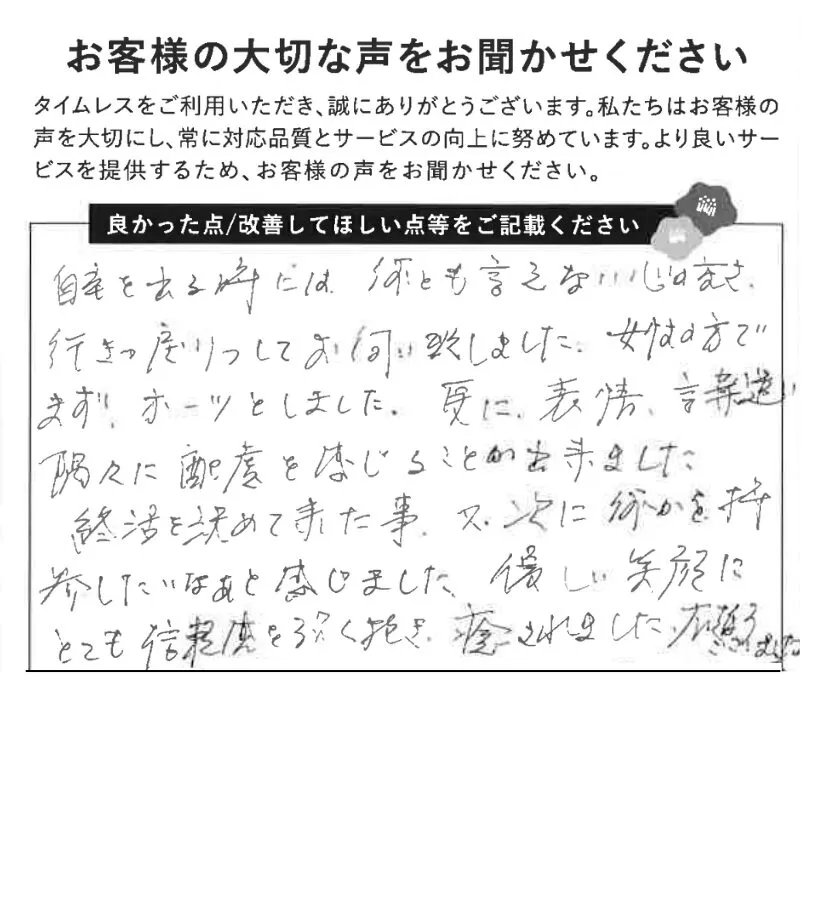 お客様の大切な声をお聞かせください
タイムレスをご利用いただき、誠にありがとうございます。私たちはお客様の
声を大切にし、常に対応品質とサービスの向上に努めています。より良いサー
ビスを提供するため、お客様の声をお聞かせください。
良かった点/改善してほしい点等をご記載ください
自宅を出る時には、何とも言えない
行きつ戻りつしてお伺い致しました。女性の方で
まず、ホーッとしました。更に、表情、言葉遣い
隅々に配慮を感じることが出来ました
終活を決めて来た事、又、次に何かを持
参したいなあと感じました。優しい笑顔に
とても信頼度を強く抱き、癒されました。有難うございました